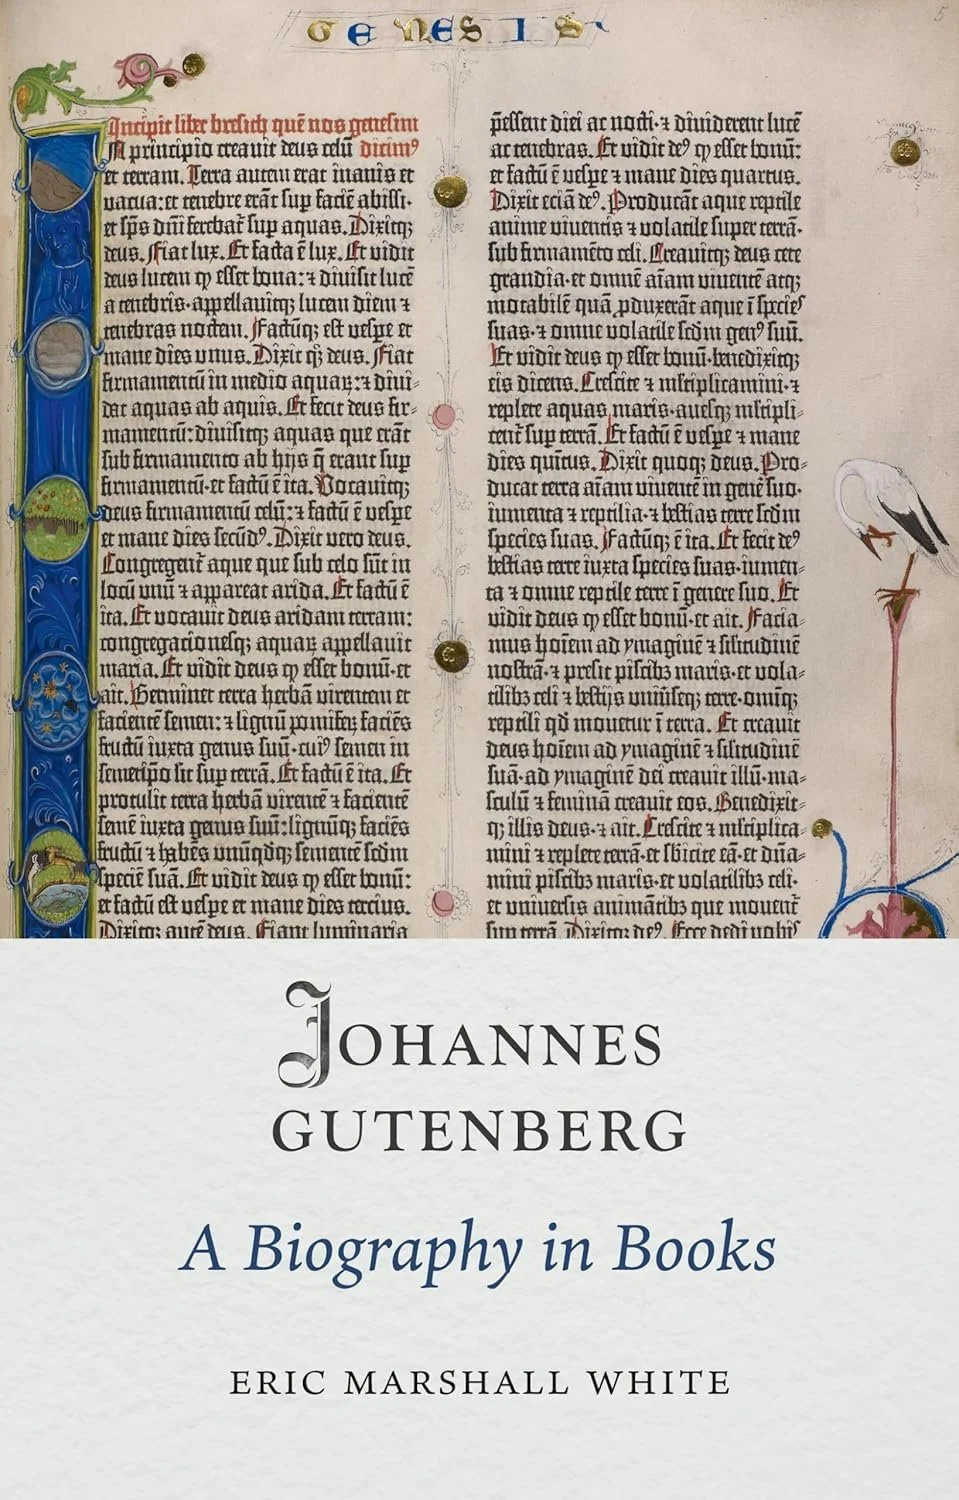 GENESIS
5
Incipit liber bresith quē nos genesim
In principio creauit deus celū dicim⁹
et terram. Terra autem erat inanis et
vacua: et tenebre erāt sup faciē abissi·
et sp̄s dn̄i ferebat̄ sup aquas. Dixitqꝫ
deus. Fiat lux. Et facta ē lux. Et vidit
deus lucem ꝙ esset bona: ⁊ diuisit lucē
a tenebris·appellauitqꝫ lucem diem ⁊
tenebras noctem. Factūqꝫ est vespe et
mane dies vnus. Dixit qꝫ deus. Fiat
firmamentū in medio aquaꝝ: ⁊ diui⸗
dat aquas ab aquis. Et fecit deus fir⸗
mamentū: diuisitqꝫ aquas que erāt
sub firmamento ab hijs q̄ erant sup
firmamentū·et factū ē ita. Vocauitqꝫ
deus firmamentū celū: ⁊ factū ē vespe
et mane dies secūd⁹. Dixit vero deus.
Congregent̄ aque que sub celo sūt in
locū vnū ⁊ appareat arida. Et factū ē
ita. Et vocauit deus aridam terram:
congregacionesqꝫ aquaꝝ appellauit
maria. Et vidit deus ꝙ esset bonū·et
ait. Germinet terra herbā virentem et
facientē semen: ⁊ lignū pomifeꝝ faciēs
fructū iuxta genus suū·cui⁹ semen in
semetip̄o sit sup terrā. Et factū ē ita. Et
protulit terra herbā virentē ⁊ facientē
semē iuxta genus suū: lignūqꝫ faciēs
fructū ⁊ habēs vnūqdqꝫ sementē scdm
speciē suā. Et vidit deus ꝙ esset bonū:
et factū est vespe et mane dies tercius.
Dixitqꝫ autē deus. Fiant luminaria
p̄essent diei ac nocti·⁊ diuiderent lucē
ac tenebras. Et vidit de⁹ ꝙ esset bonū:
et factū ē vespe ⁊ mane dies quartus.
Dixit eciā de⁹. Producāt aque reptile
anime viuentis ⁊ volatile super terrā·
sub firmamēto celi. Creauitqꝫ deus cete
grandia·et omnē aīam viuentē atqꝫ
motabilē quā ꝓduxerāt aque ī species
suas·⁊ omne volatile scdm gen⁹ suū.
Et vidit deus ꝙ esset bonū·benedixitqꝫ
eis dicens. Crescite ⁊ mltiplicamini·⁊
replete aquas maris·auesqꝫ mltipli⸗
cent̄ sup terrā. Et factū ē vespe ⁊ mane
dies quītus. Dixit quoqꝫ deus. Pro⸗
ducat terra aīam viuentē in genē suo·
iumenta ⁊ reptilia·⁊ bestias terre scdm
species suas. Factūqꝫ ē ita. Et fecit de⁹
bestias terre iuxta species suas·iumen⸗
ta ⁊ omne reptile terre ī genere suo. Et
vidit deus ꝙ esset bonū·et ait. Facia⸗
mus hoīem ad ymaginē ⁊ sīlitudinē
nostrā·⁊ presit piscibꝫ maris·et vola⸗
tilibꝫ celi ⁊ bestijs vniūseqꝫ terre·omīqꝫ
reptili qd mouetur ī terra. Et creauit
deus hoīem ad ymaginē ⁊ sīlitudinē
suā·ad ymaginē dei creauit illū·ma⸗
sculū ⁊ feminā creauit eos. Benedixit⸗
qꝫ illis deus·⁊ ait. Crescite ⁊ mltiplica⸗
mini ⁊ replete terrā·et sbicite eā·et dn̄a⸗
mini piscibꝫ maris·et volatilibꝫ celi·
et vniuersis animātibꝫ que mouent̄
sup terrā. Dixitqꝫ de⁹. Ecce dedi vobis
JOHANNES
GUTENBERG
A Biography in Books
ERIC MARSHALL WHITE